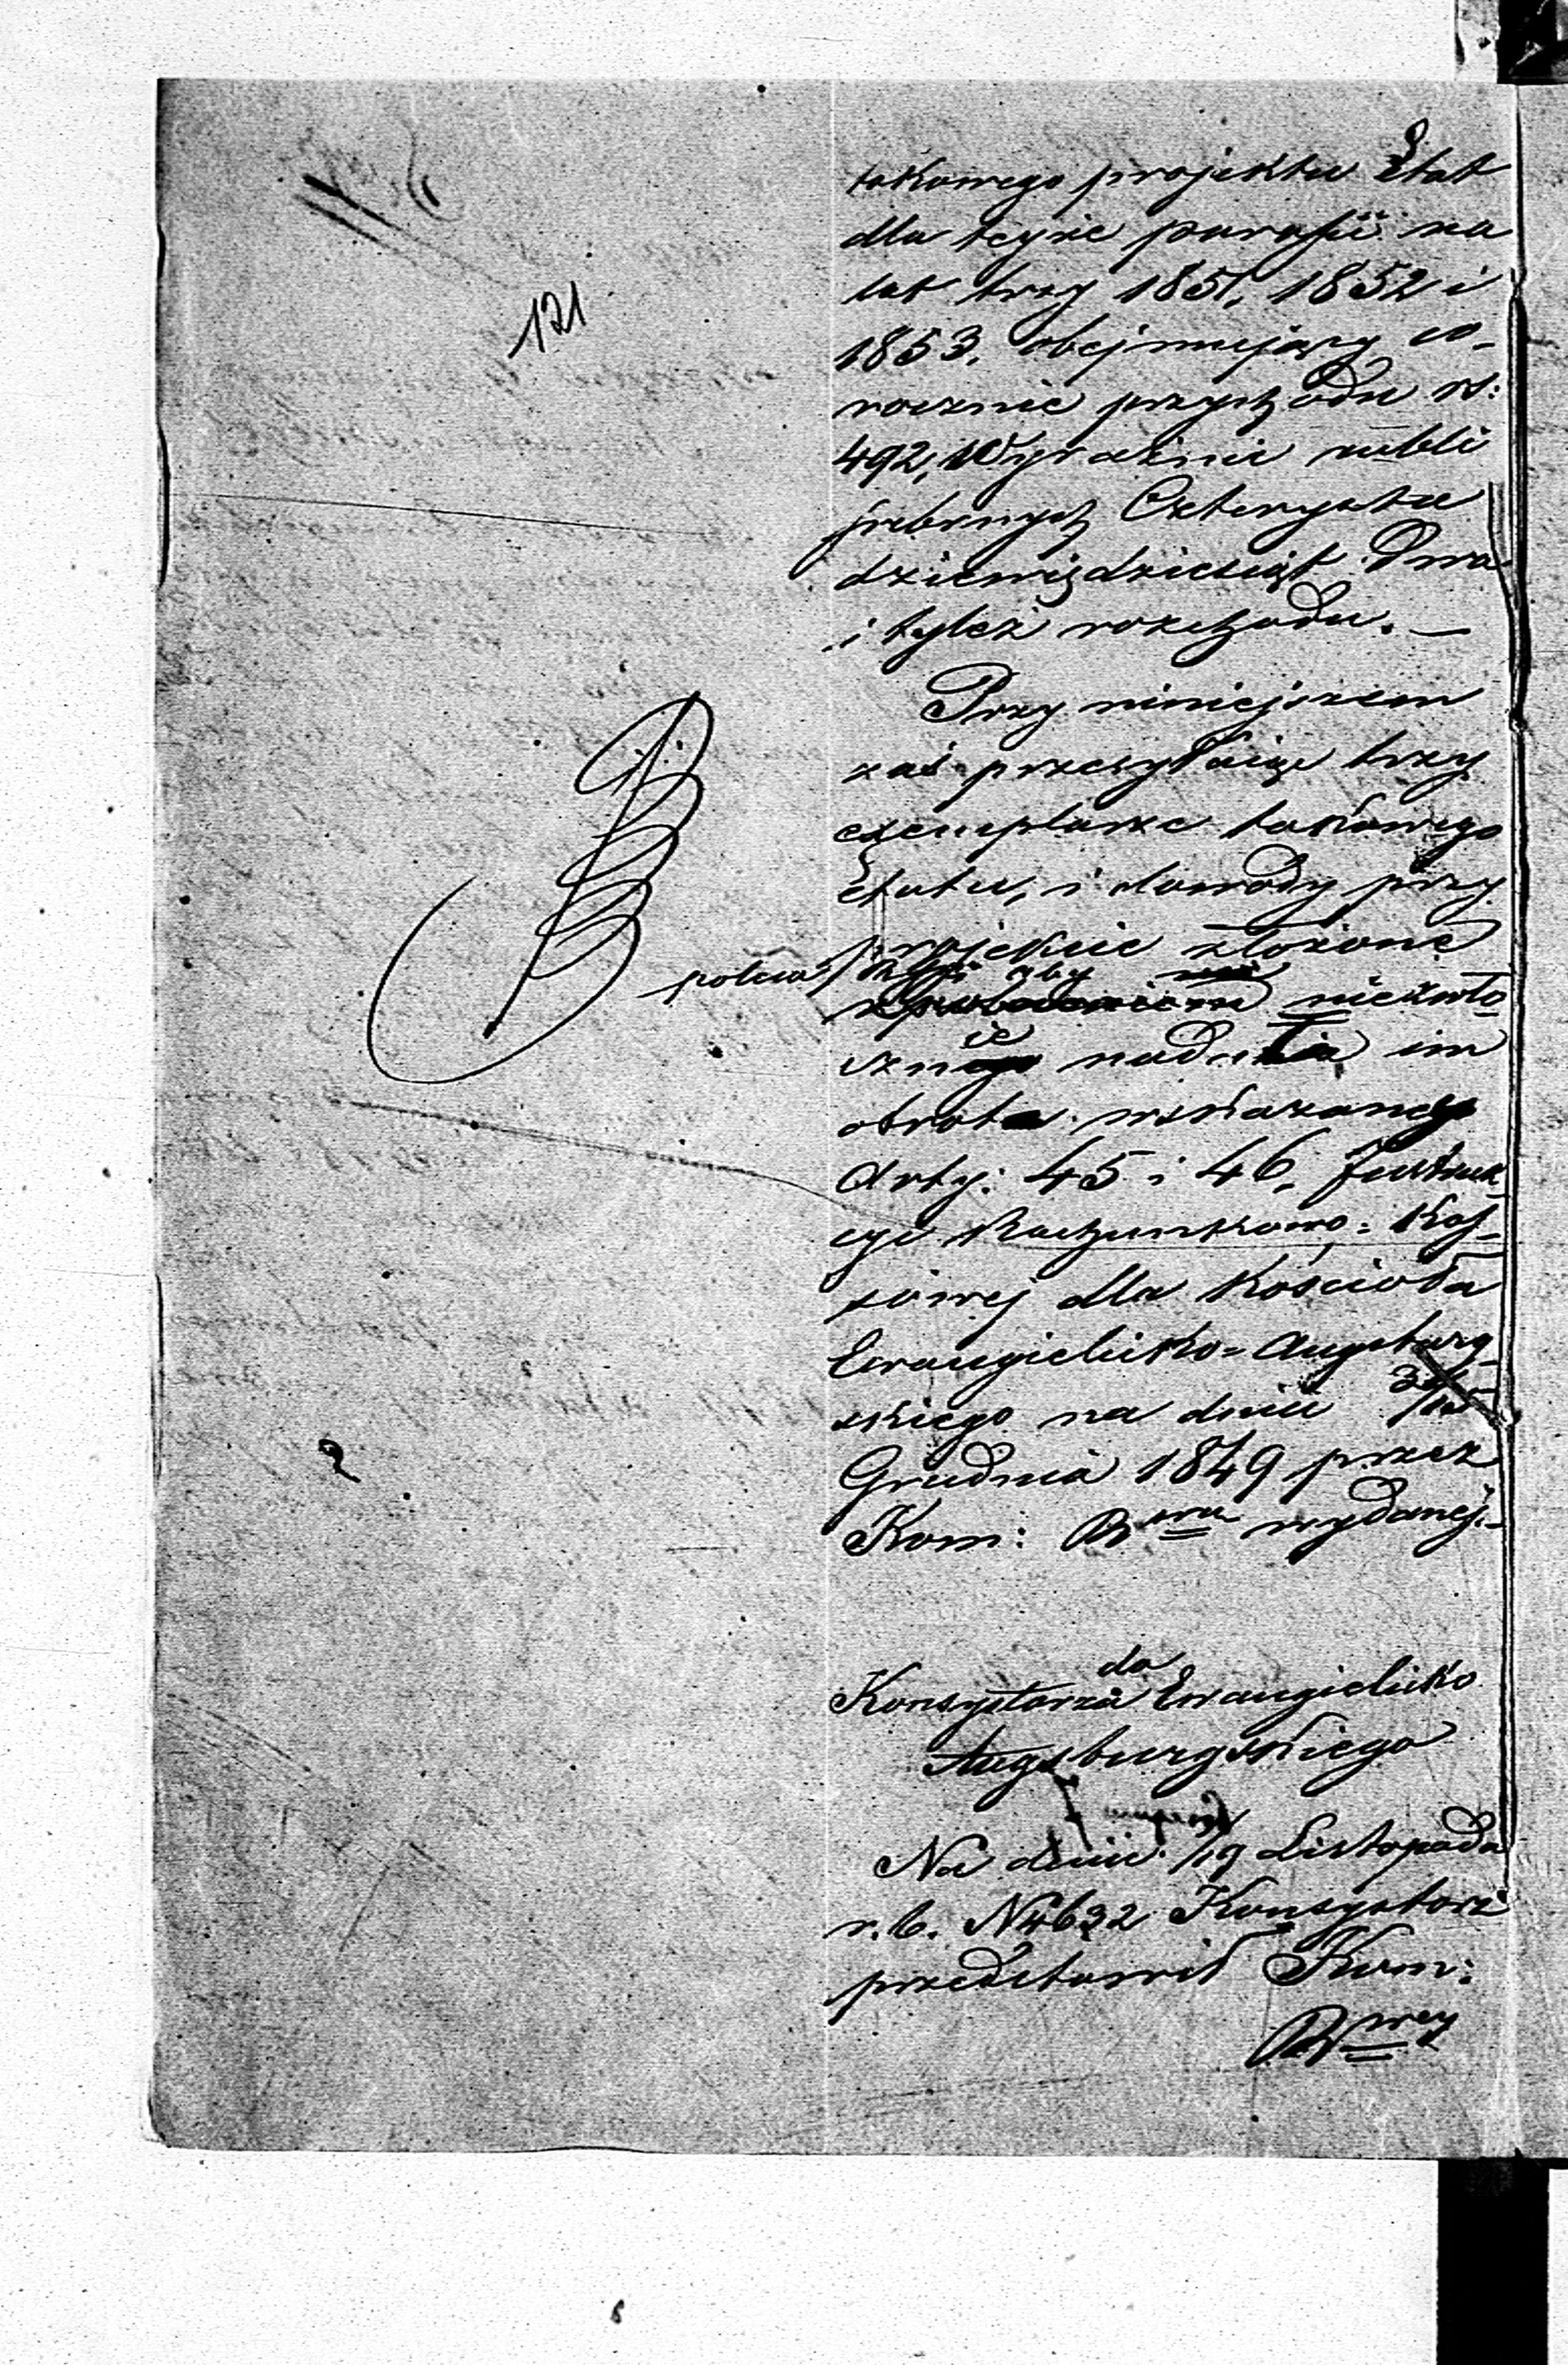 121
takowego projektu Etat
dla tejże parafii na
lat trzy 1851, 1852 i
1853. obejmujący co-
rocznie przychodu rs:
492, Wyraźnie rubli
srebrnych Czterysta
dziewięćdziesiąt Dwa
i tyleż rozchodu. —
Przy niniejszem
zaś przesyłając trzy
exemplarze takowego
Etatu, i dowody przy
projekcie złożone
poleca aby
niezwło
cznie nadała im
obrot wskazany
Arty: 45 i 46. Instruk
cyi Rachunkowo= Kas-
sowej dla Kościoła
Ewangielicko= Augsburg-
skiego na dniu
Grudnia 1849 przez
Kom: Rwą wydanej.-
do
Konsystorza Ewangielicko
Augsburgskiego
Na dniu 7/19 Listopada
r. b. N 4632 Konsystorz
przedstawił Kom:
Rwey